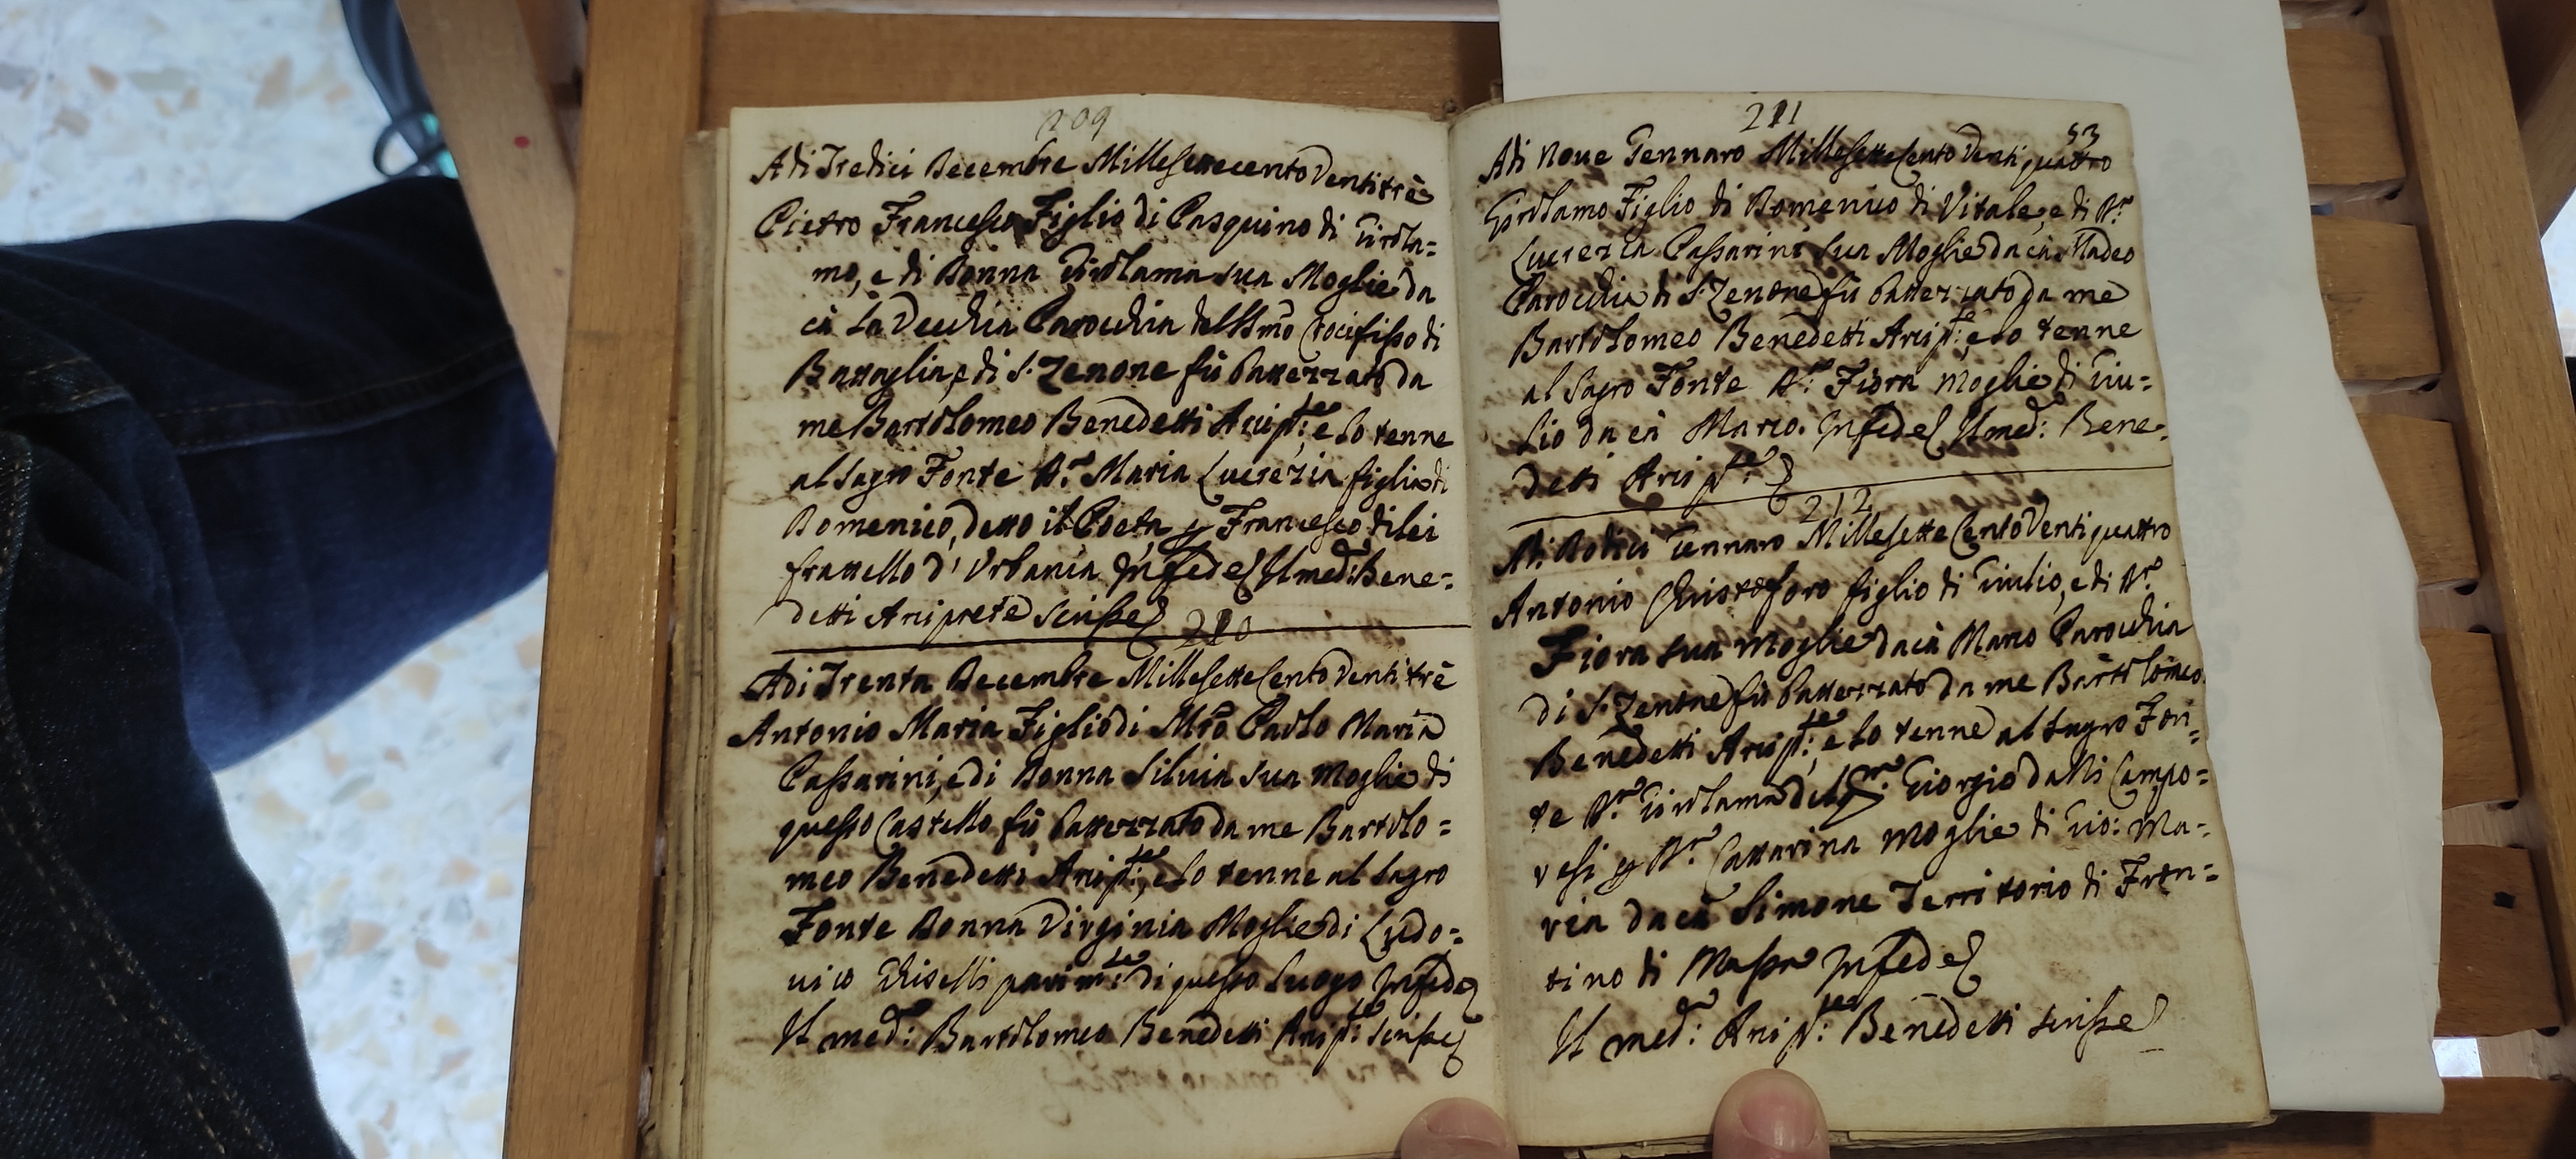 209
Adi Tredici Decembre Millesettecento Ventitrè
Pietro Francesco Figlio di Pasquino di Girola=
mo, e di Donna Girolama sua Moglie da
cà la Vecchia Parochia del SSmo Crocifisso di
Battaglia, e di S. Zenone fù battezzato da
me Bartolomeo Benedetti Arcip.te: e lo tenne
al Sagro Fonte D.a Maria Lucrezia figlia di
Domenico, detto il Poeta, p Francesco di lei
frattello d' Urbania In fede Il med.o Bene=
detti Arciprete scrisse
210
Adi Trenta Decembre MillesetteCento Ventitrè
Antonio Maria Figlio di Mro Paolo Maria
Cassarini, e di Donna Silvia sua Moglie di
questo Castello fù battezzato da me Bartolo=
meo Benedetti Arcip.te: e lo tenne al Sagro
Fonte Donna Virginia Moglie di Ludo=
vico Ghiselli parim.te: di questo Luogo In fede
Il med.o: Bartolomeo Benedetti Arcip.te: scrisse
211
53
Adi Nove Gennaro MillesetteCento Ventiquattro
Girolamo Figlio di Domenico di Vitale, e di D.a
Lucrezia Cassarini sua Moglie da cà
Parochia di S. Zenone fù battezzato da me
Bartolomeo Benedetti Arcip.te: e lo tenne
al Sagro Fonte D.a Fiora Moglie di Giu=
lio da cà Marco. In fede Il med.o: Bene=
detti Arcip.te
212
Adi Dodici Gennaro MillesetteCento Ventiquattro
Antonio Christoforo figlio di Giulio, e di D.a
Fiora sua Moglie da cà Marco Parochia
di S. Zenone fù battezzato da me Bartolomeo
Benedetti Arcip.te: e lo tenne al Sagro Fon=
te D.a Girolama del Giorgio dalli Campo=
resi p D.a Cattarina Moglie di Gio: Ma=
ria da cà Simone Territorio di Fron=
tino di Massa In fede
Il med.o: Arcip.te: Benedetti scrisse